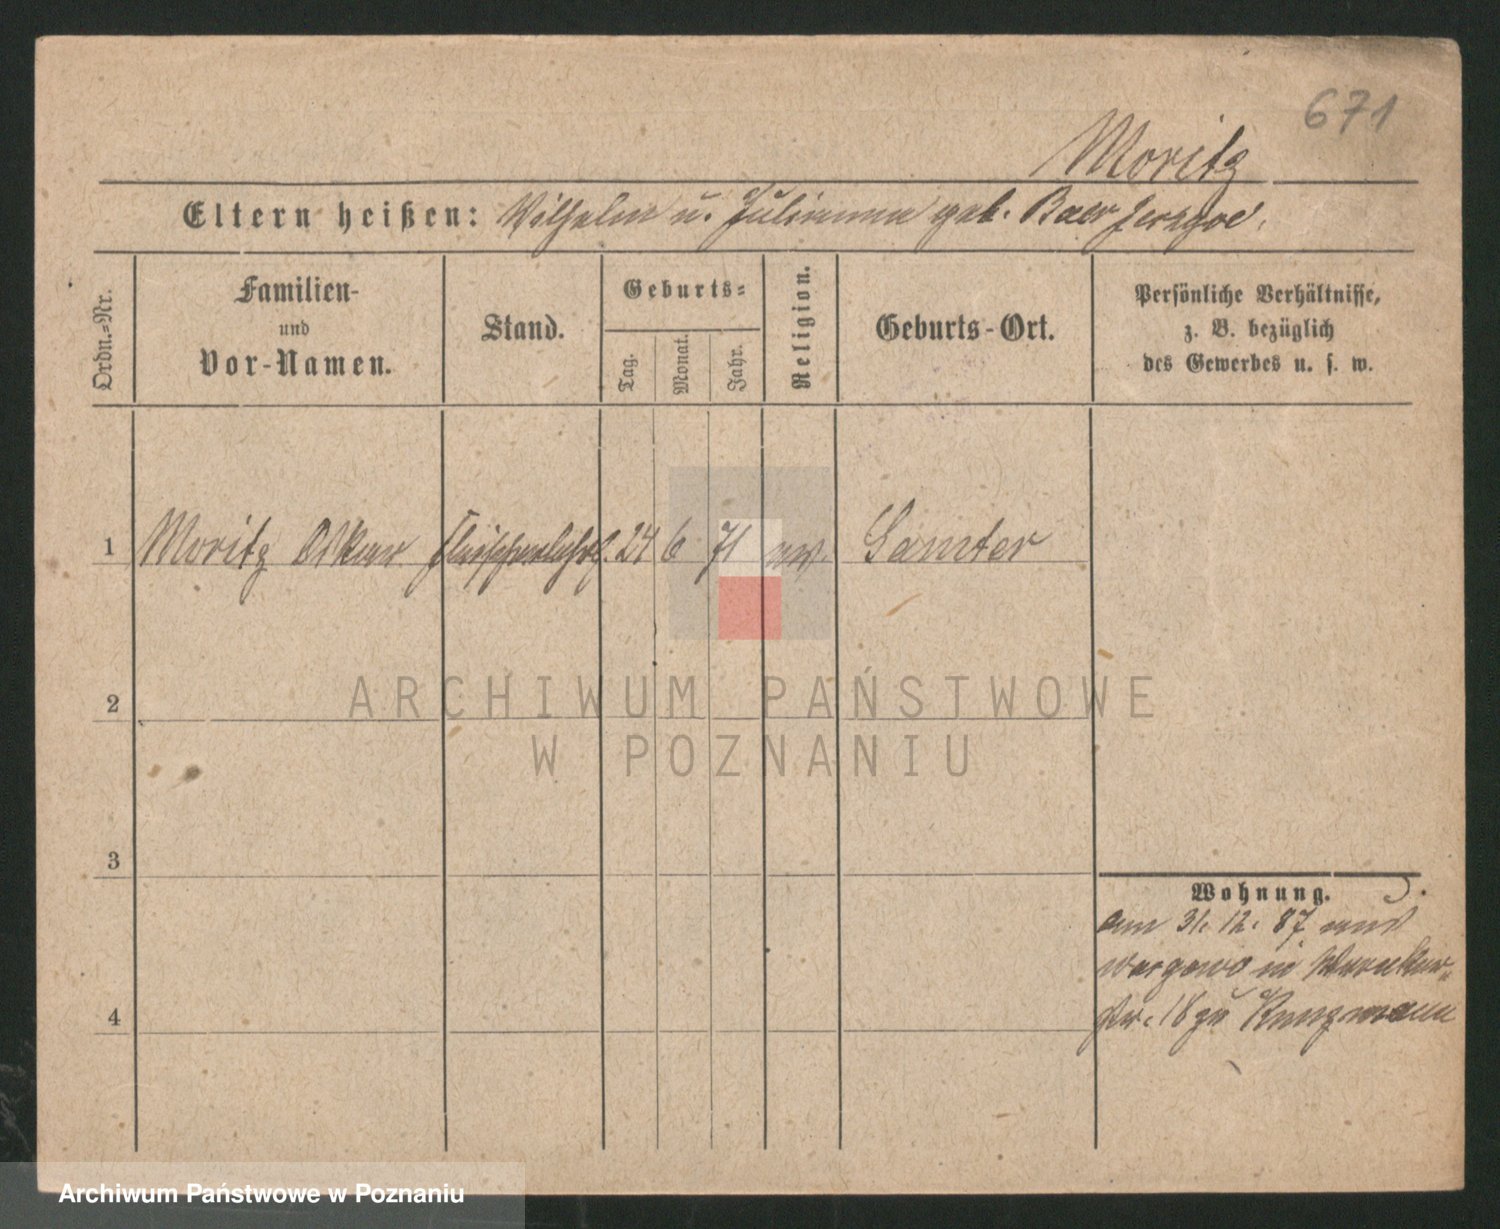 671
Moritz
Eltern heißen: Wilhelm u. Julianna geb. Baer
Ordn.-Nr.
Familien-
und
Vor-Namen.
Stand.
Geburts-
Tag.
Monat.
Jahr.
Religion.
Geburts-Ort.
Persönliche Verhältnisse,
z. B. bezüglich
des Gewerbes u. s. w.
1 Moritz Oskar Fleischerlehrl. 24 6 71 ev. Samter
2
3
4
Wohnung.
am 31. 12. 87 aus
Wargowo in
18 zu
ARCHIWUM PAŃSTWOWE
W POZNANIU
Archiwum Państwowe w Poznaniu